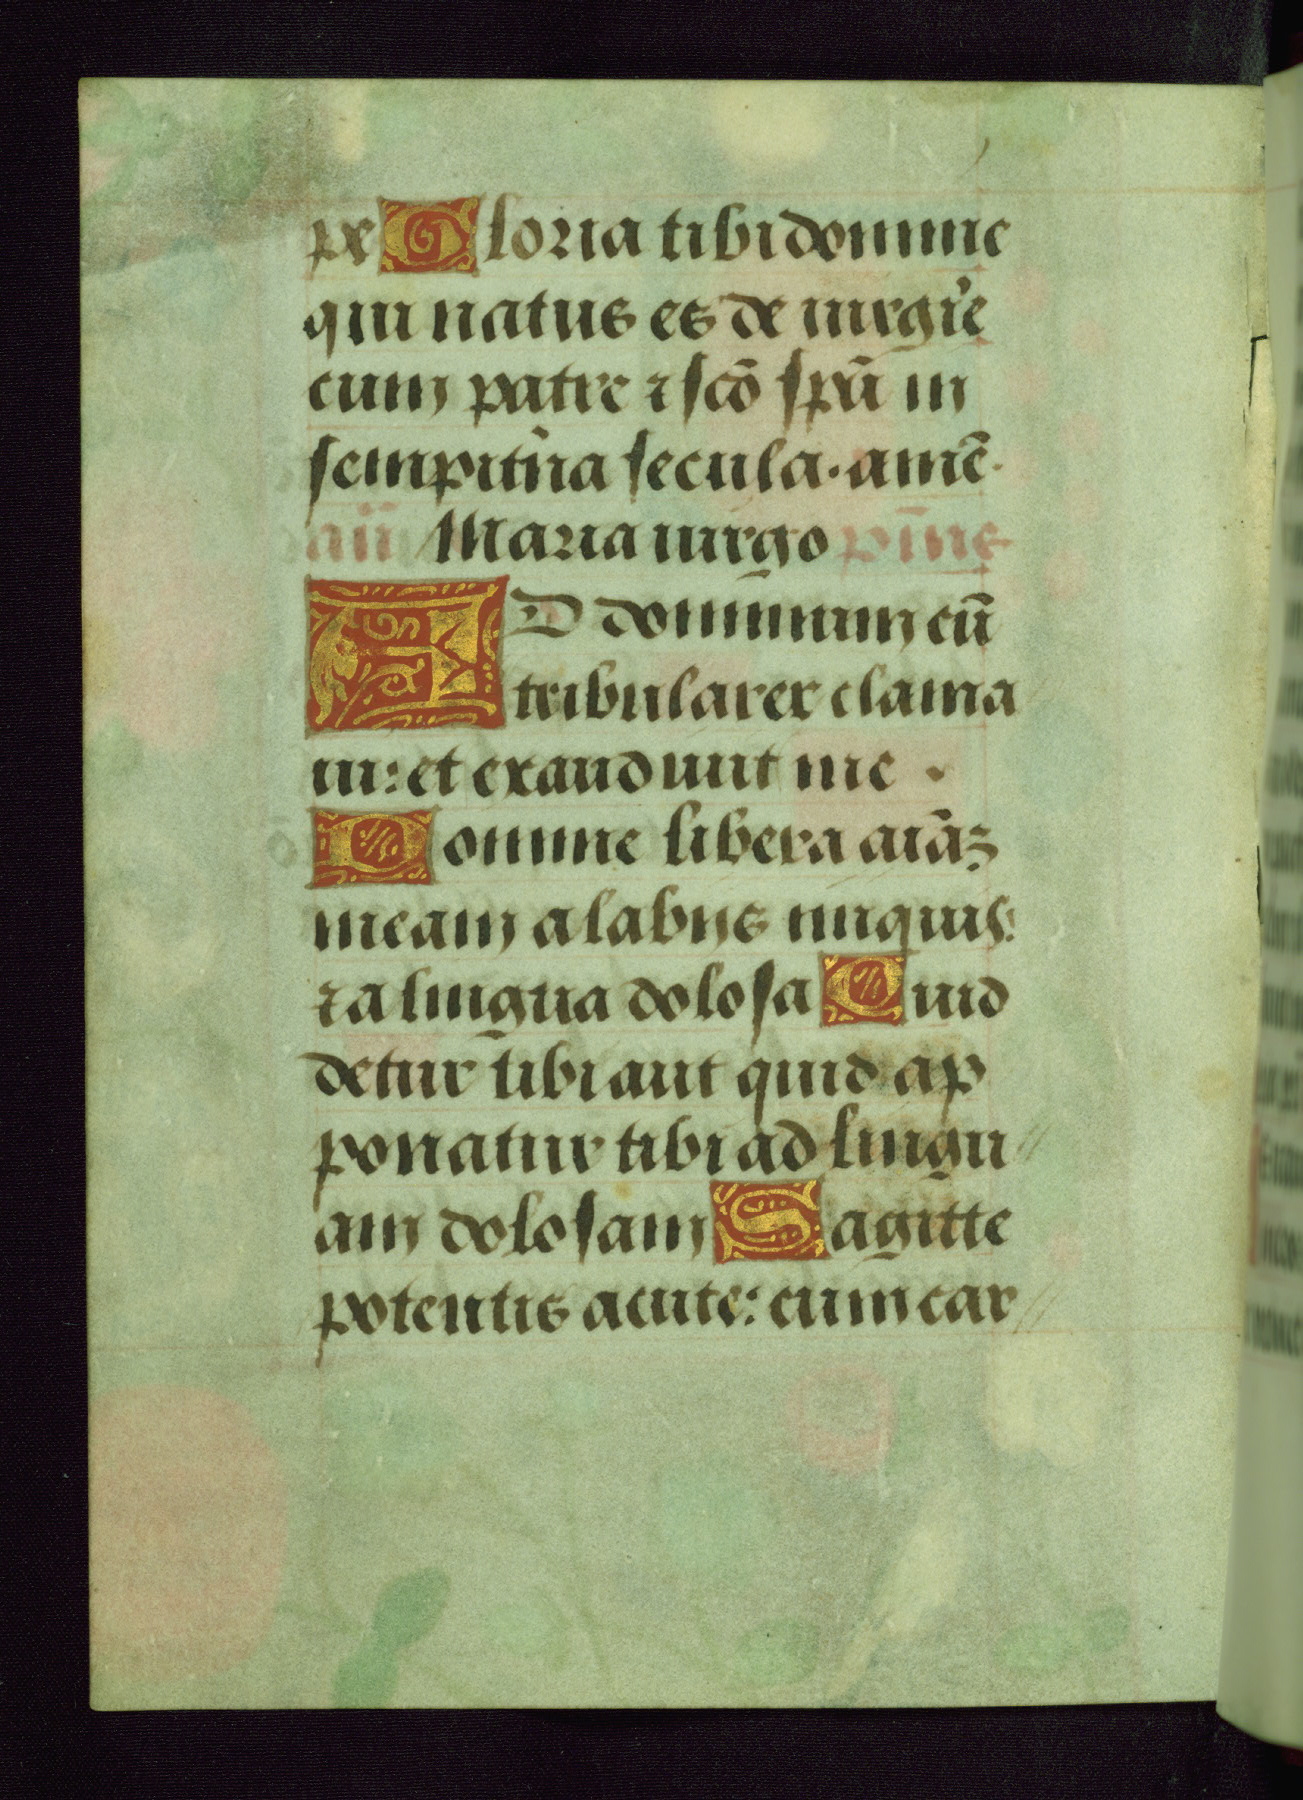 pe Gloria tibi domine
qui natus es de uirgīe
cum patre ⁊ scō spū in
sempit̄na secula. amē.
añ Maria uirgo p̄us
AD dominum cū
tribularer clama
ui: et exaudiuit me .
Domine libera aīāꝫ
meam a labijs iniquis:
⁊ a lingua dolosa Quid
detur tibi aut quid ap
ponatur tibi ad lingu
am dolosam Sagitte
potentis acute: cum car